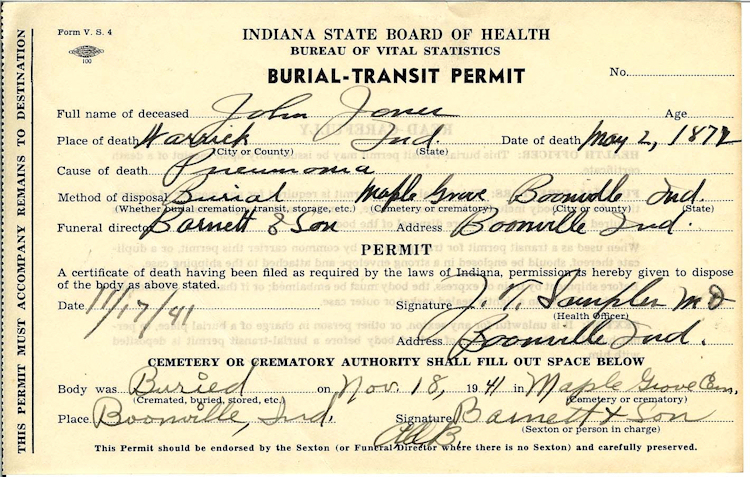 Form V. S. 4
100
INDIANA STATE BOARD OF HEALTH
BUREAU OF VITAL STATISTICS
BURIAL-TRANSIT PERMIT
No.
Full name of deceased John Jones Age
Place of death Warrick Ind. Date of death May 2, 1872
(City or County) (State)
Cause of death Pneumonia
Method of disposal Burial Maple Grove Boonville Ind.
(Whether burial cremation, transit, storage, etc.) (Cemetery or crematory) (City or county) (State)
Funeral director Barnett & Son Address Boonville Ind.
PERMIT
A certificate of death having been filed as required by the laws of Indiana, permission is hereby given to dispose
of the body as above stated.
Date 11/17/41 Signature J. T. Sampler M D
(Health Officer)
Address Boonville Ind.
CEMETERY OR CREMATORY AUTHORITY SHALL FILL OUT SPACE BELOW
Body was Buried on Nov. 18, 1941 in Maple Grove Cem,
(Cremated, buried, stored, etc.) (Cemetery or crematory)
Place Boonville, Ind. Signature Barnett & Son
(Sexton or person in charge)
This Permit should be endorsed by the Sexton (or Funeral Director where there is no Sexton) and carefully preserved.
THIS PERMIT MUST ACCOMPANY REMAINS TO DESTINATION